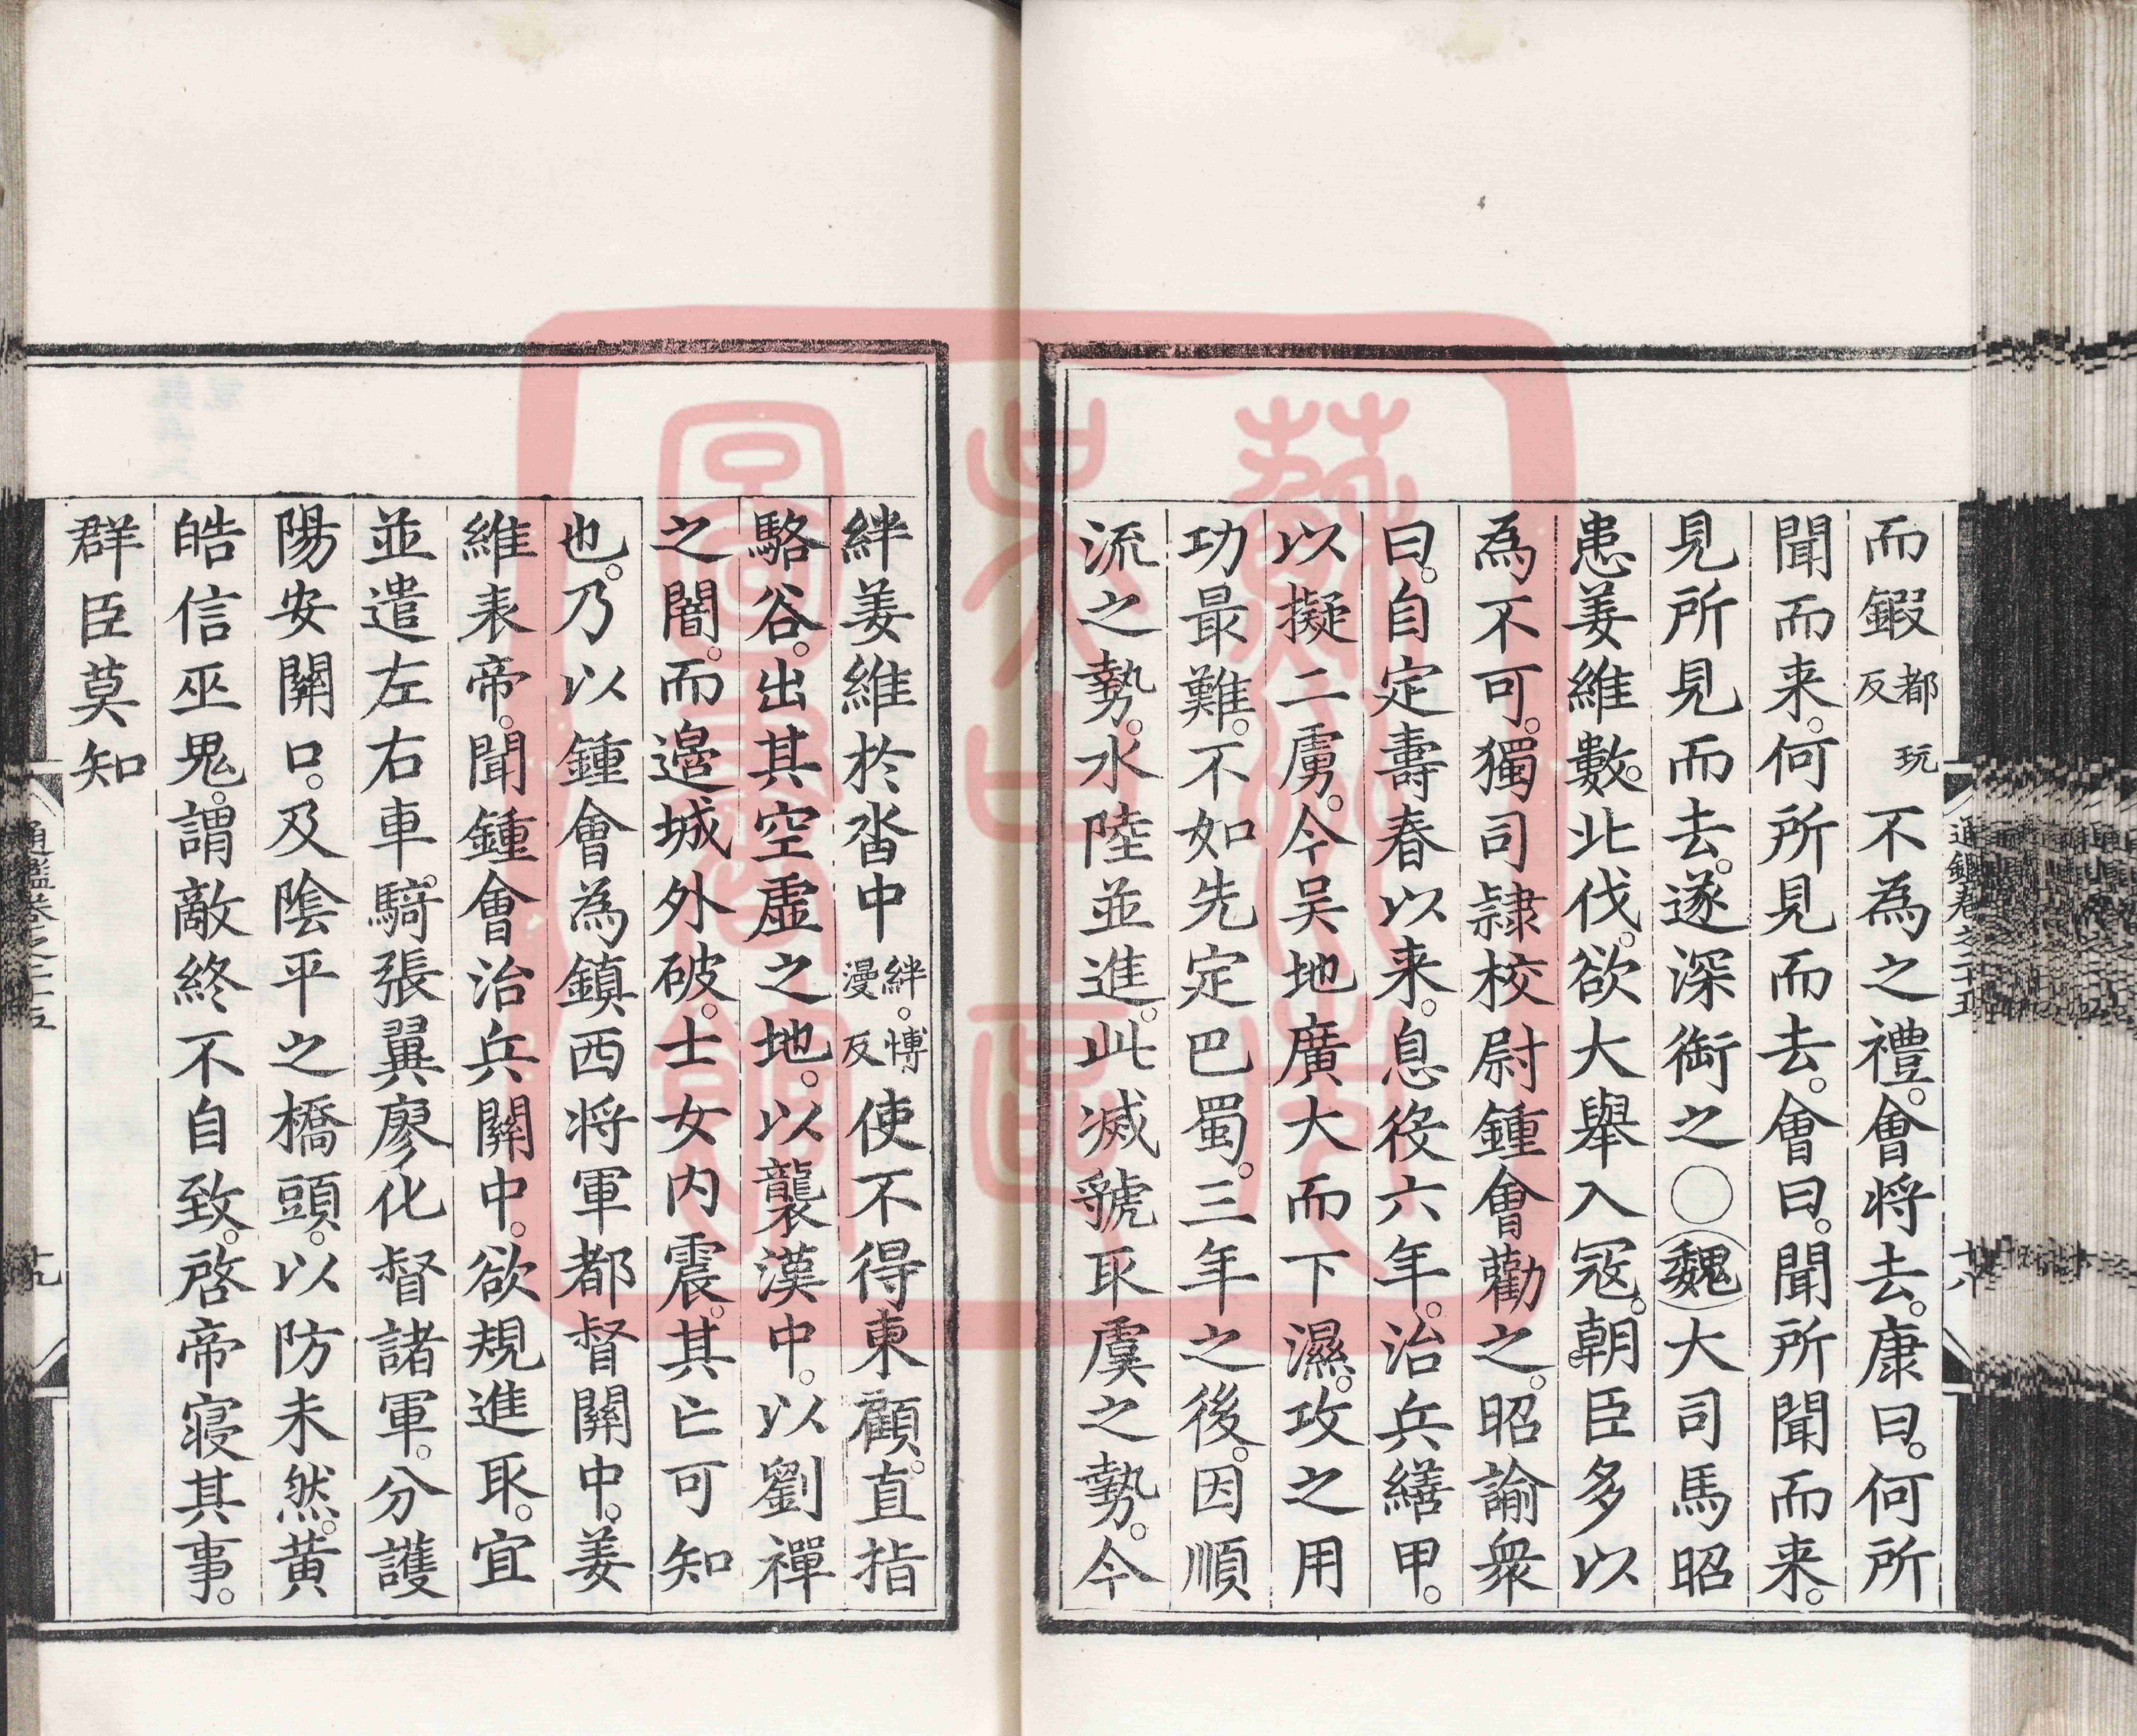 而鍜都玩反不為之禮。會将去。康曰。何所
聞而来。何所見而去。會曰。聞所聞而来。
見所見而去。遂深衘之○魏大司馬昭
患姜維數。北伐。欲大舉入冦。朝臣多以
為不可。獨司隷校尉鍾會勸之。昭諭衆
曰。自定壽春以来。息役六年。治兵繕甲。
以擬二虜。今吴地廣大而下濕。攻之用
功最難。不如先定巴蜀。三年之後。因順
流之勢。水陸並進。此滅虢取虞之勢。今
絆姜維於沓中絆。博漫反使不得東顧。直指
駱谷。出其空虛之地。以襲漢中。以劉禪
之闇。而邉城外破。士女内震。其亡可知
也。乃以鍾會為鎮西将軍都督關中。姜
維表帝。聞鍾會治兵關中。欲規進取。宜
並遣左右車。騎張翼廖化督諸軍。分護
陽安關口。及隂平之橋頭。以防未然。黄
皓信巫鬼。謂敵終不自致。啓帝寢其事。
群臣莫知
通鑑卷之十五
十八
通鑑卷之十五
十九